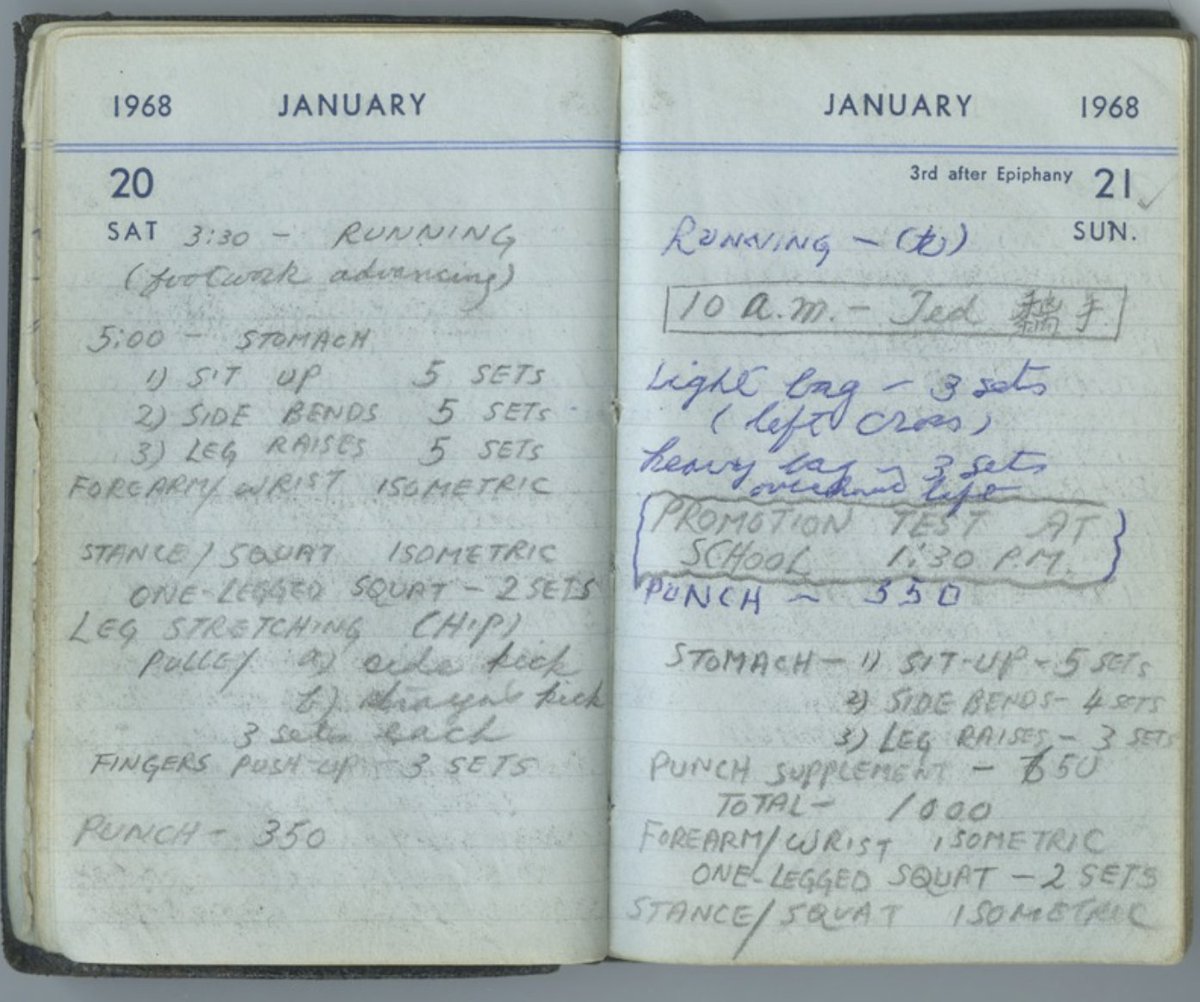 1968 JANUARY
20
SAT 3:30 - RUNNING
(footwork advancing)
5:00 - STOMACH
1) SIT UP 5 SETS
2) SIDE BENDS 5 SETS
3) LEG RAISES 5 SETS
FOREARM/WRIST ISOMETRIC
STANCE/SQUAT ISOMETRIC
ONE-LEGGED SQUAT - 2 SETS
LEG STRETCHING (HIP)
PULLEY a) side kick
b) kick
3 sets each
FINGERS PUSH-UP - 3 SETS
PUNCH - 350
JANUARY 1968
3rd after Epiphany 21
SUN.
RUNNING -
10 A.M. - Ted 黐手
Light bag - 3 sets
(left cross)
heavy bag - 3 sets
overhand left
PROMOTION TEST AT
SCHOOL 1:30 P.M.
PUNCH - 350
STOMACH - 1) SIT-UP - 5 SETS
2) SIDE BENDS - 4 SETS
3) LEG RAISES - 3 SETS
PUNCH SUPPLEMENT - 650
TOTAL - 1000
FOREARM/WRIST ISOMETRIC
ONE-LEGGED SQUAT - 2 SETS
STANCE/SQUAT ISOMETRIC